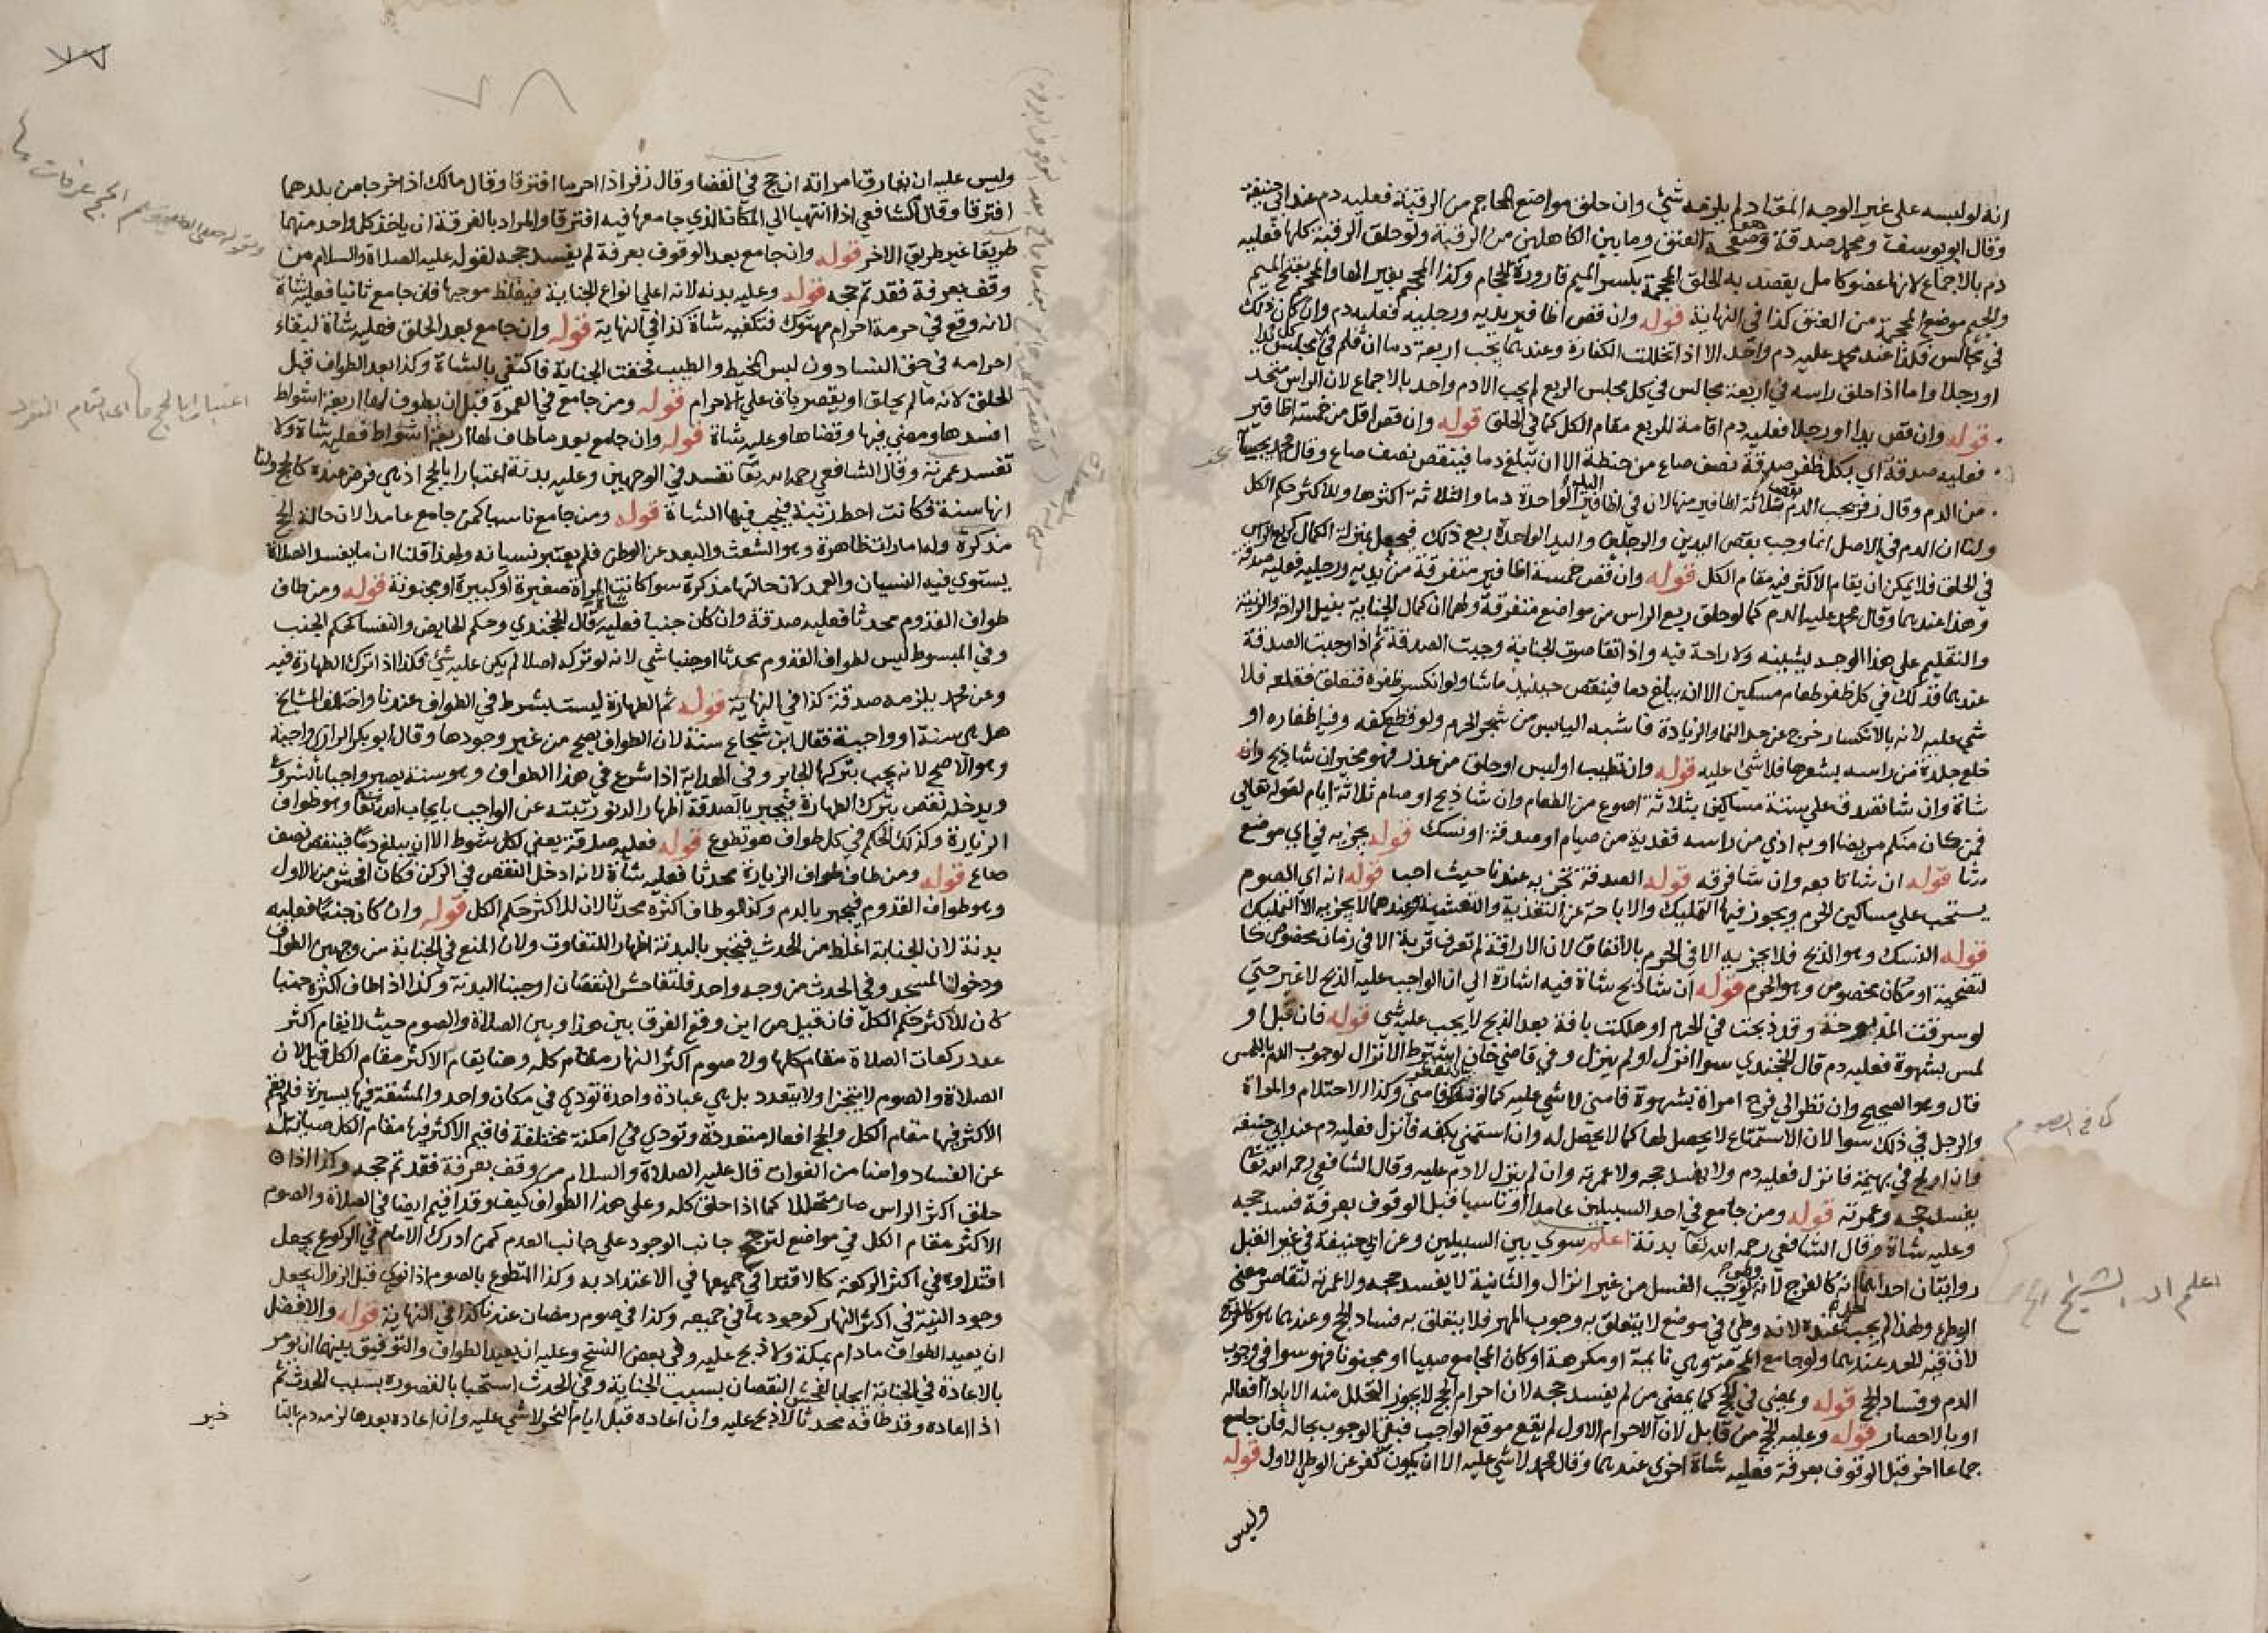 انه لو لبسه على غير الوجه المعتاد لم يلزمه شي وان حلق مواضع المحاجم من الرقبة فعليه دم عند ابي حنيفة
وقال ابو يوسف ومحمد صدقة وهي صفحة العنق وما بين الكاهلين من الرقبة ولو حلق الرقبة كلها فعليه
دم بالاجماع لانها عضو كامل يقصد به الحلق المحجمة بكسر الميم قارورة الحجام وكذا المحجم بغير الهاء والمحجم بفتح الميم
والجيم موضع المحجمة من العنق كذا في النهاية قوله وان قص اظافير يديه ورجليه فعليه دم وان كان ذلك
في مجالس فكذا عند محمد عليه دم واحد الا اذا تخللت الكفارة وعندهما يجب اربعة دما ان قلم في كل مجلس يدا
او رجلا واما اذا حلق راسه في اربعة مجالس في كل مجلس الربع لم يجب الا دم واحد بالاجماع لان الراس متحد
قوله وان قص يدا او رجلا فعليه دم اقامة للربع مقام الكل كما في الحلق قوله وان قص اقل من خمسة اظافير
فعليه صدقة اي بكل ظفر صدقة نصف صاع من حنطة الا ان تبلغ دما فينقص نصف صاع وقال محمد بحسابه
من الدم وقال زفر يجب الدم بقص ثلاثة اظافير منها لان في اظافير اليد الواحدة دما والثلاثة اكثرها وللاكثر حكم الكل
ولنا ان الدم في الاصل انما وجب بقص اليدين والرجلين واليد الواحدة ربع ذلك فيجعل بمنزلة الكمال كربع الراس
في الحلق فلا يمكن ان يقام الاكثر فيه مقام الكل قوله وان قص خمسة اظافير متفرقة من يديه ورجليه فعليه صدقة
وهذا عندهما وقال محمد عليه الدم كما لو حلق ربع الراس من مواضع متفرقة ولهما ان كمال الجناية بنيل الراحة والزينة
والتقليم على هذا الوجه يشينه ولا راحة فيه واذا تقاصرت الجناية وجبت الصدقة ثم اذا وجبت الصدقة
عندهما فذلك في كل ظفر طعام مسكين الا ان يبلغ دما فينقص حينئذ ما شا ولو انكسر ظفره فتعلق فقلعه فلا
شي عليه لانه بالانكسار خرج عن حد النما والزيادة فاشبه اليابس من شجر الحرم ولو قطع كفه وفيها اظفاره او
خلع جلدة من راسه بشعرها فلا شي عليه قوله وان تطيب او لبس او حلق من عذر فهو مخير ان شا ذبح
شاة وان شا تصدق على ستة مساكين بثلاثة اصوع من الطعام وان شا صام ثلاثة ايام لقوله تعالى
فمن كان منكم مريضا او به اذى من راسه ففدية من صيام او صدقة او نسك قوله يجزيه في اي موضع
شا قوله ان شا تابعه وان شا فرقه قوله الصدقة تجزيه عندنا حيث احب قوله انه اي الصوم
يستحب على مساكين الحرم ويجوز فيها التمليك والاباحة عن التغذية والتعشية وعندهما لا يجزيه الا التمليك
قوله النسك وهو الذبح فلا يجزيه الا في الحرم بالاتفاق لان الاراقة لم تعرف قربة الا في زمان مخصوص كا
لتضحية او مكان مخصوص وهو الحرم قوله ان شا ذبح شاة فيه اشارة الى ان الواجب عليه الذبح لا غير حتى
لو سرقت المذبوحة وقد ذبحت في الحرم او هلكت بافة بعد الذبح لا يجب عليه شي قوله فان قبل او
لمس بشهوة فعليه دم قال الخجندي سوا انزل او لم ينزل وفي قاضي خان اشترط الانزال لوجوب الدم باللمس
قال وهو الصحيح وان نظر الى فرج امراة بشهوة فامنى لا شي عليه كما لو تفكر فامنى وكذا الاحتلام والمراة
والرجل في ذلك سوا لان الاستمتاع لا يحصل لها كما لا يحصل له وان استمنى بكفه فانزل فعليه دم عند ابي حنيفة
وان اولج في بهيمة فانزل فعليه دم ولا يفسد حجه ولا عمرته وان لم ينزل لا دم عليه وقال الشافعي رحمه الله تعا
يفسد حجه وعمرته قوله ومن جامع في احد السبيلين عامدا او ناسيا قبل الوقوف بعرفة فسد حجه
وعليه شاة وقال الشافعي رحمه الله تعا بدنة اعلم سوى بين السبيلين وعن ابي حنيفة في غير القبل
روايتان احداهما انه كالفرج لانه وطي يوجب الغسل من غير انزال والثانية لا يفسد حجه ولا عمرته لتقاصر معنى
الوطي ولهذا لم يجب الحد عنده لانه وطي في موضع لا يتعلق به وجوب المهر فلا يتعلق به فساد الحج وعندهما هو كالفرج
لان فيه الحد عندهما ولو جامع المحرمة وهي نائمة او مكرهة او كان المجامع صبيا او مجنونا فهو سوا في وجوب
الدم وفساد الحج قوله ويمضي في الحج كما يمضي من لم يفسد حجه لان احرام الحج لا يجوز التحلل منه الا باداء افعاله
او بالاحصار قوله وعليه الحج من قابل لان الاحرام الاول لم يقع موقع الواجب فبقي الوجوب بحاله فان جامع
جماعا اخر قبل الوقوف بعرفة فعليه شاة اخرى عندهما وقال محمد لا شي عليه الا ان يكون كفر عن الوطي الاول قوله
وليس
كا في الصوم
اعلم ان الشيخ
٧٨
وليس عليه ان يفارق امراته ان حج في القضا وقال زفر اذا احرما افترقا وقال مالك اذا خرجا من بلدهما
افترقا وقال الشافعي اذا انتهيا الى المكان الذي جامعها فيه افترقا والمراد بالفرقة ان ياخذ كل واحد منهما
طريقا غير طريق الاخر قوله وان جامع بعد الوقوف بعرفة لم يفسد حجه لقوله عليه الصلاة والسلام من
وقف بعرفة فقد تم حجه قوله وعليه بدنة لانه اعلى انواع الجناية فيغلظ موجبها فان جامع ثانيا فعليه شاة
لانه وقع في حرمة احرام مهتوك فتكفيه شاة كذا في النهاية قوله وان جامع بعد الحلق فعليه شاة لبقاء
احرامه في حق النسا دون لبس المخيط والطيب فخفت الجناية فاكتفى بالشاة وكذا بعد الطواف قبل
الحلق لانه ما لم يحلق او يقصر باق على الاحرام قوله ومن جامع في العمرة قبل ان يطوف لها اربعة اشواط
افسدها ومضى فيها وقضاها وعليه شاة قوله وان جامع بعد ما طاف لها اربعة اشواط فعليه شاة ولا
تفسد عمرته وقال الشافعي رحمه الله تعا تفسد في الوجهين وعليه بدنة اعتبارا بالحج اذ هي فرض عنده كالحج ولنا
انها سنة فكانت احط رتبة فيجب فيها الشاة قوله ومن جامع ناسيا كمن جامع عامدا لان حالة الحج
مذكرة ولها امارات ظاهرة وهو الشعث والبعد عن الوطن فلم يعتبر نسيانه ولهذا قلنا ان ما يفسد الصلاة
يستوي فيه النسيان والعمد لان حالتها مذكرة سوا كانت المراة صغيرة او كبيرة او مجنونة قوله ومن طاف
طواف القدوم محدثا فعليه صدقة وان كان جنبا فعليه شاة قال الخجندي وحكم الحايض والنفسا كحكم الجنب
وفي المبسوط ليس لطواف القدوم محدثا او جنبا شي لانه لو تركه اصلا لم يكن عليه شي فكذا اذا ترك الطهارة فيه
وعن محمد يلزمه صدقة كذا في النهاية قوله ثم الطهارة ليست بشرط في الطواف عندنا واختلف المشايخ
هل هي سنة او واجبة فقال ابن شجاع سنة لان الطواف يصح من غير وجودها وقال ابو بكر الرازي واجبة
وهو الاصح لانه يجب بتركها الجابر وفي الهداية اذا شرع في هذا الطواف وهو سنة يصير واجبا بالشروع
ويدخله نقص بترك الطهارة فيجبر بالصدقة اظهارا لدنو رتبته عن الواجب بايجاب الله تعا وهو طواف
الزيارة وكذلك الحكم في كل طواف هو تطوع قوله فعليه صدقة يعني لكل شوط الا ان يبلغ دما فينقص نصف
صاع قوله ومن طاف طواف الزيارة محدثا فعليه شاة لانه ادخل النقص في الركن فكان افحش من الاول
وهو طواف القدوم فيجبر بالدم وكذا لو طاف اكثره محدثا لان للاكثر حكم الكل قوله وان كان جنبا فعليه
بدنة لان الجنابة اغلظ من الحدث فيجبر بالبدنة اظهارا للتفاوت ولان المنع في الجنابة من وجهين الطواف
ودخول المسجد وفي الحدث من وجه واحد فلتفاحش النقصان اوجبنا البدنة وكذا اذا طاف اكثره جنبا
كان للاكثر حكم الكل فان قيل من اين وقع الفرق بين هذا وبين الصلاة والصوم حيث لا يقام اكثر
عدد ركعات الصلاة مقام كلها ولا صوم اكثر النهار مقام كله وهنا يقام الاكثر مقام الكل قيل لان
الصلاة والصوم لا يتجزا ولا يتعدد بل هي عبادة واحدة تؤدى في مكان واحد والمشقة فيها يسيرة فلم يقم
الاكثر فيها مقام الكل والحج افعال متعددة وتودي في امكنة مختلفة فاقيم الاكثر فيها مقام الكل صيانة له
عن الفساد وامنا من الفوات قال عليه الصلاة والسلام من وقف بعرفة فقد تم حجه وكذا اذا
حلق اكثر الراس صار متحللا كما اذا حلق كله وعلى هذا الطواف كيف وقد اقيم ايضا في الصلاة والصوم
الاكثر مقام الكل في مواضع لترجح جانب الوجود على جانب العدم كمن ادرك الامام في الركوع يجعل
اقتداوه في اكثر الركعة كالاقتدا في جميعها في الاعتداد به وكذا المتطوع بالصوم اذا نوى قبل الزوال يجعل
وجود النية في اكثر النهار كوجودها في جميعه وكذا في صوم رمضان عندنا كذا في النهاية قوله والافضل
ان يعيد الطواف ما دام بمكة ولا ذبح عليه وفي بعض النسخ وعليه ان يعيد الطواف والتوفيق بينهما ان يومر
بالاعادة في الجنابة ايجابا لفحش النقصان بسبب الجنابة وفي الحدث استحبابا لقصوره بسبب الحدث ثم
اذا اعاده وقد طافه محدثا لا ذبح عليه وان اعاده قبل ايام النحر لا شي عليه وان اعاده بعدها لزمه دم بالتا
خير